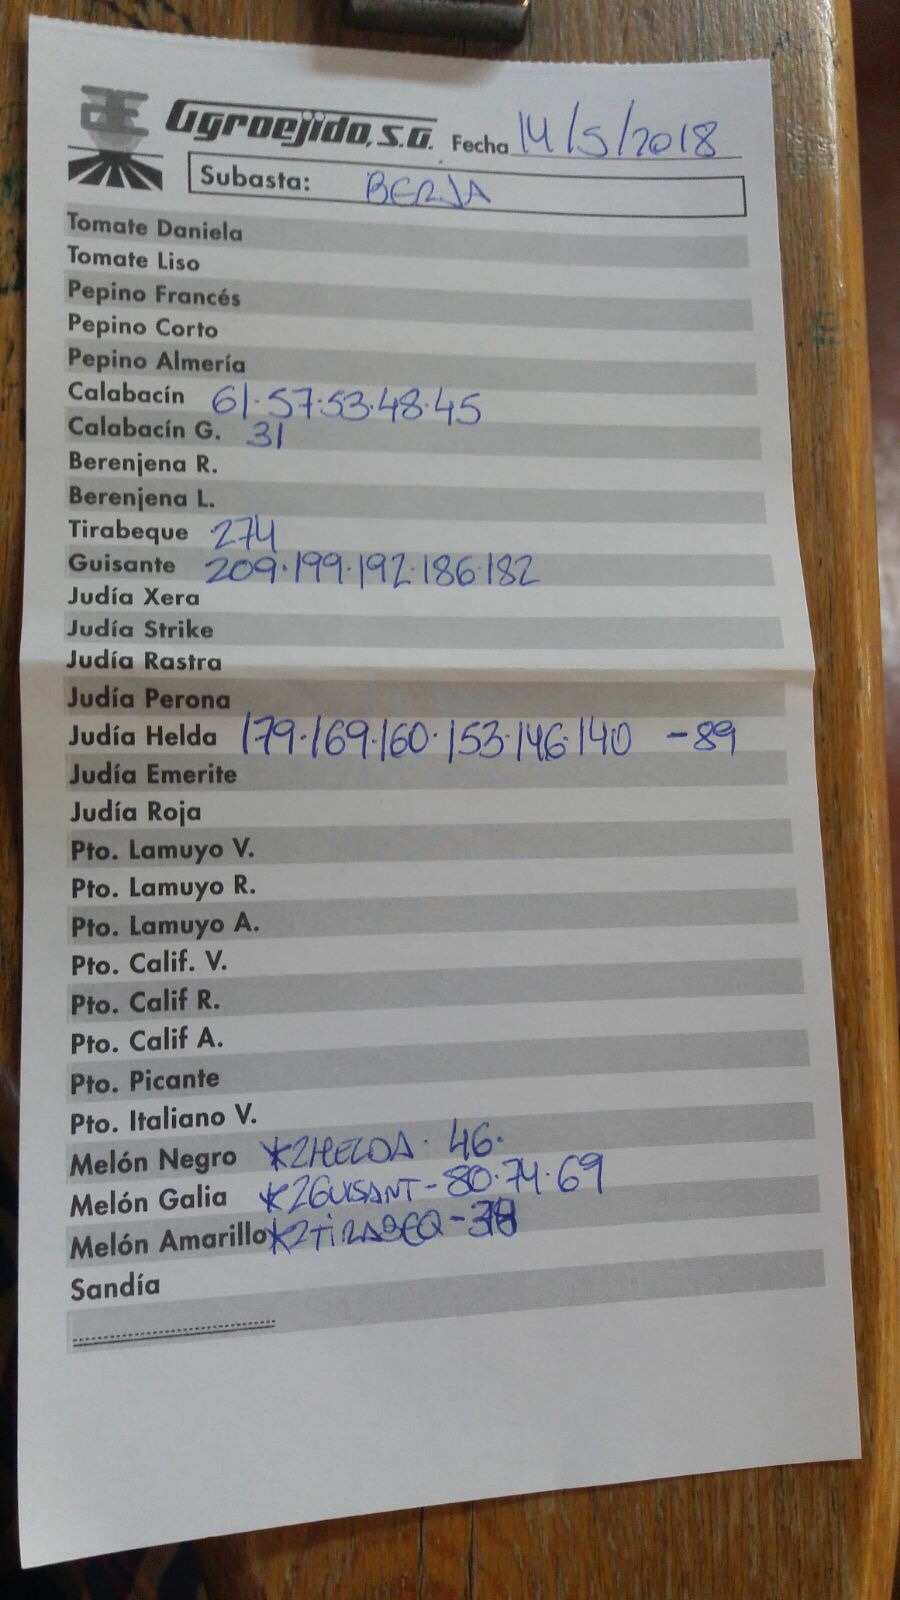 Agroejido, S.A. Fecha 14/5/2018
Subasta: BERJA
Tomate Daniela
Tomate Liso
Pepino Francés
Pepino Corto
Pepino Almería
Calabacín 61.57.53.48.45
Calabacín G. 31
Berenjena R.
Berenjena L.
Tirabeque 274
Guisante 209.199.192.186.182
Judía Xera
Judía Strike
Judía Rastra
Judía Perona
Judía Helda 179.169.160.153.146.140 -89
Judía Emerite
Judía Roja
Pto. Lamuyo V.
Pto. Lamuyo R.
Pto. Lamuyo A.
Pto. Calif. V.
Pto. Calif R.
Pto. Calif A.
Pto. Picante
Pto. Italiano V.
Melón Negro *2HELDA. 46.
Melón Galia *2GUISANT-80.74.69
Melón Amarillo *2TiRABEQ-
Sandía